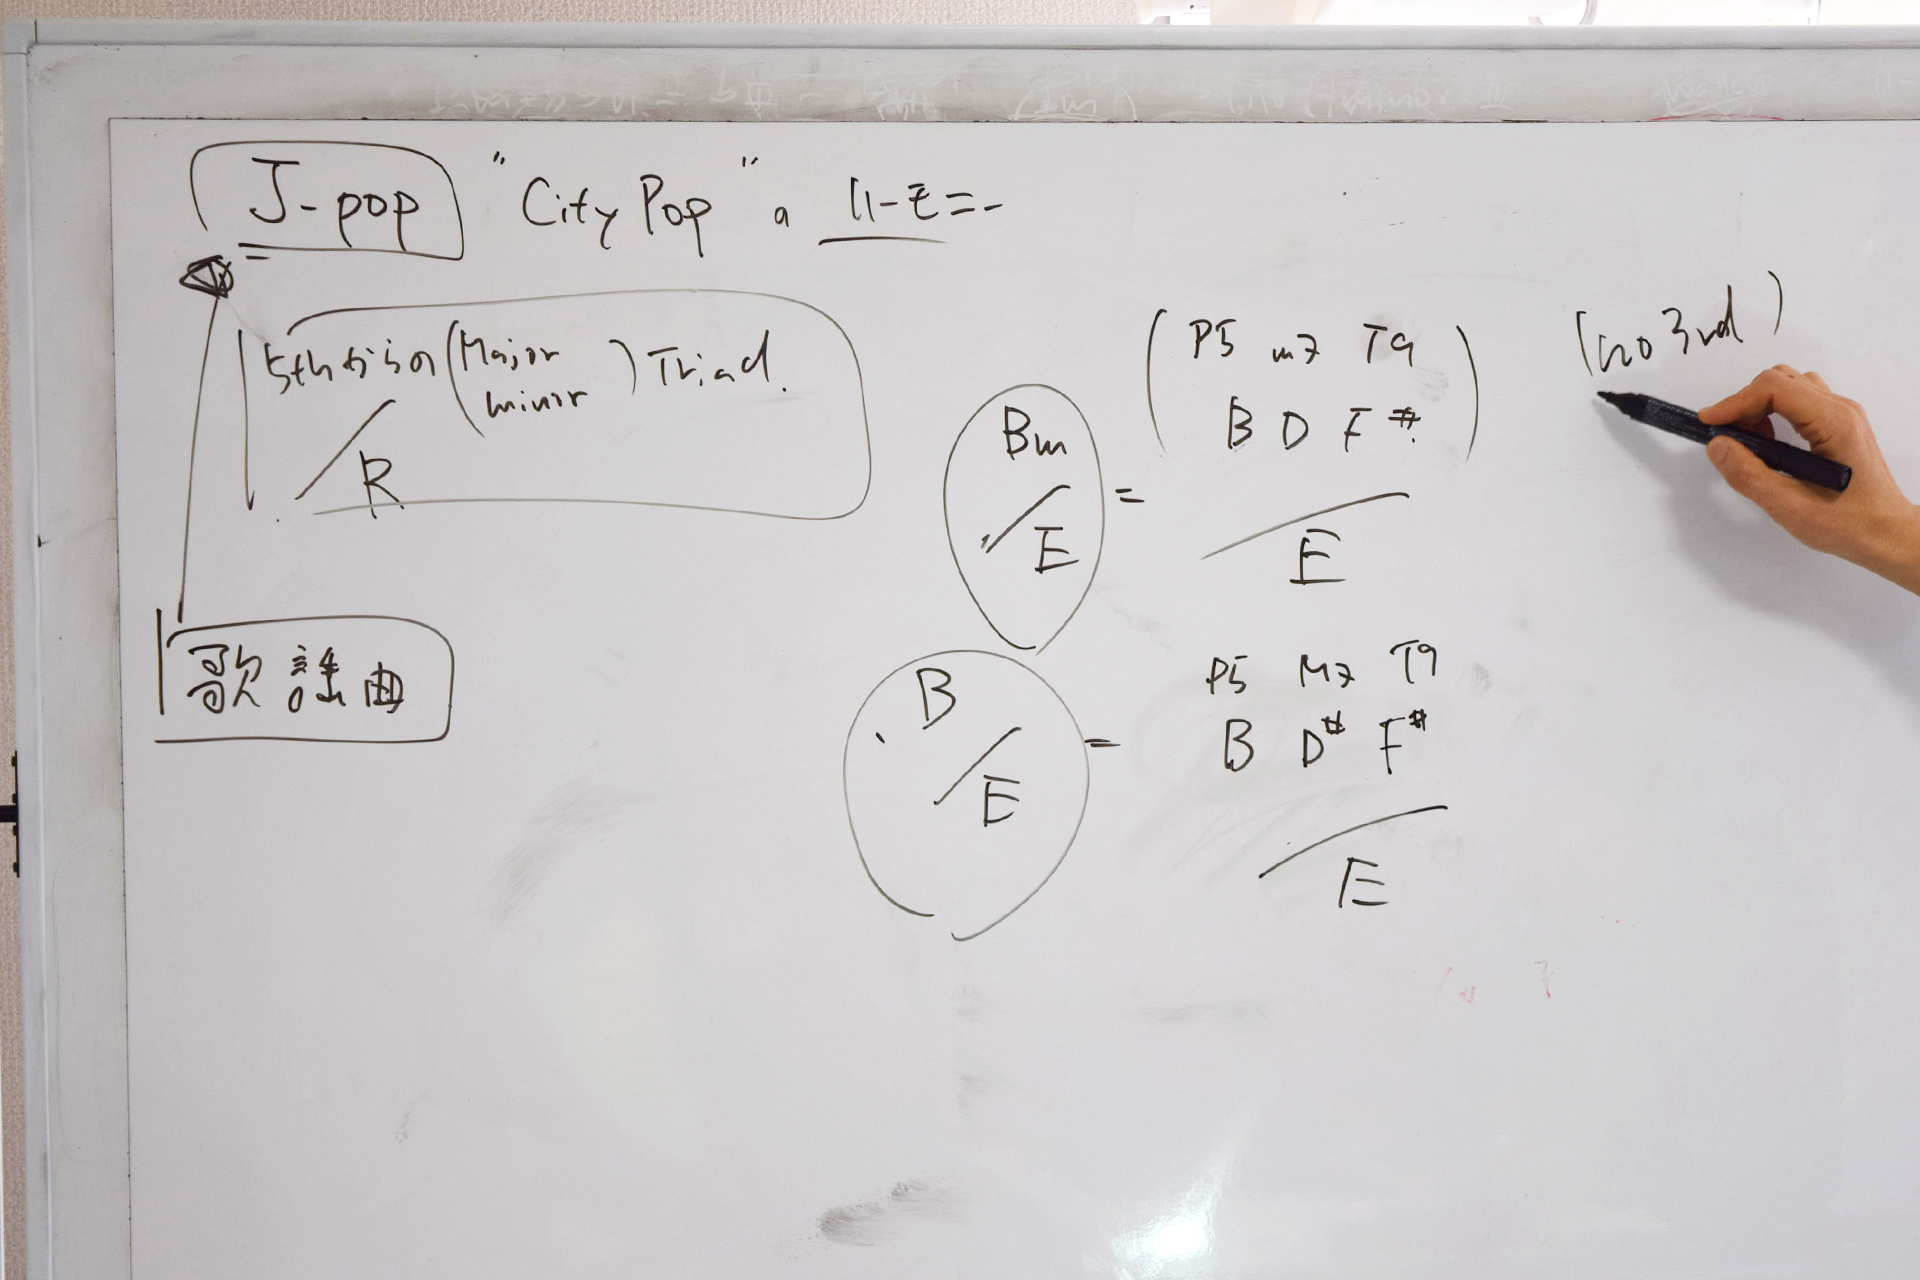 J-pop "City Pop" の ハーモニー
5thからの (Major minor) Triad.
/
R
歌謡曲
Bm
/
E
=
(P5 m7 T9
B D F#)
/
E
(no 3rd)
B
/
E
=
P5 M7 T9
B D# F#
/
E